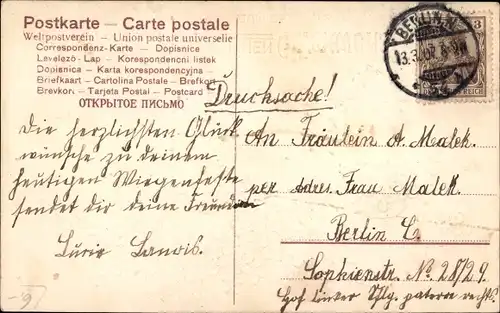 Postkarte — Carte postale
Weltpostverein - Union postale universelle
Correspondenz-Karte — Dopisnice
Levelező-Lap — Korespondencni listek
Dopisnica — Karta korespondencyjna —
Briefkaart — Cartolina Postale — Brefkort
Brevkort — Tarjeta Postal — Postcard
ОТКРЫТОЕ ПИСЬМО
BERLIN. N.
13.3.07. 8-9N
3
REICH
Drucksache!
Die herzlichsten Glück
wünsche zu deinem
heutigen Wiegenfeste
sendet dir deine Freundin
An Fräulein A. Malek.
per Adres. Frau
Malek.
Berlin C.
Sophienstr. No 28/29.
Hof linker Flg. patere rechts.